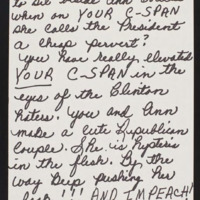 to sit beside Ann
when on YOUR C-SPAN
she calls the President
a cheap pervert?
you have really elevated
YOUR C-SPAN in the
eyes of the Clinton
haters. you and Ann
make a cute Republican
couple. She is
in the flesh. By the
way Deep pushing her
book !!! AND IMPEACH!